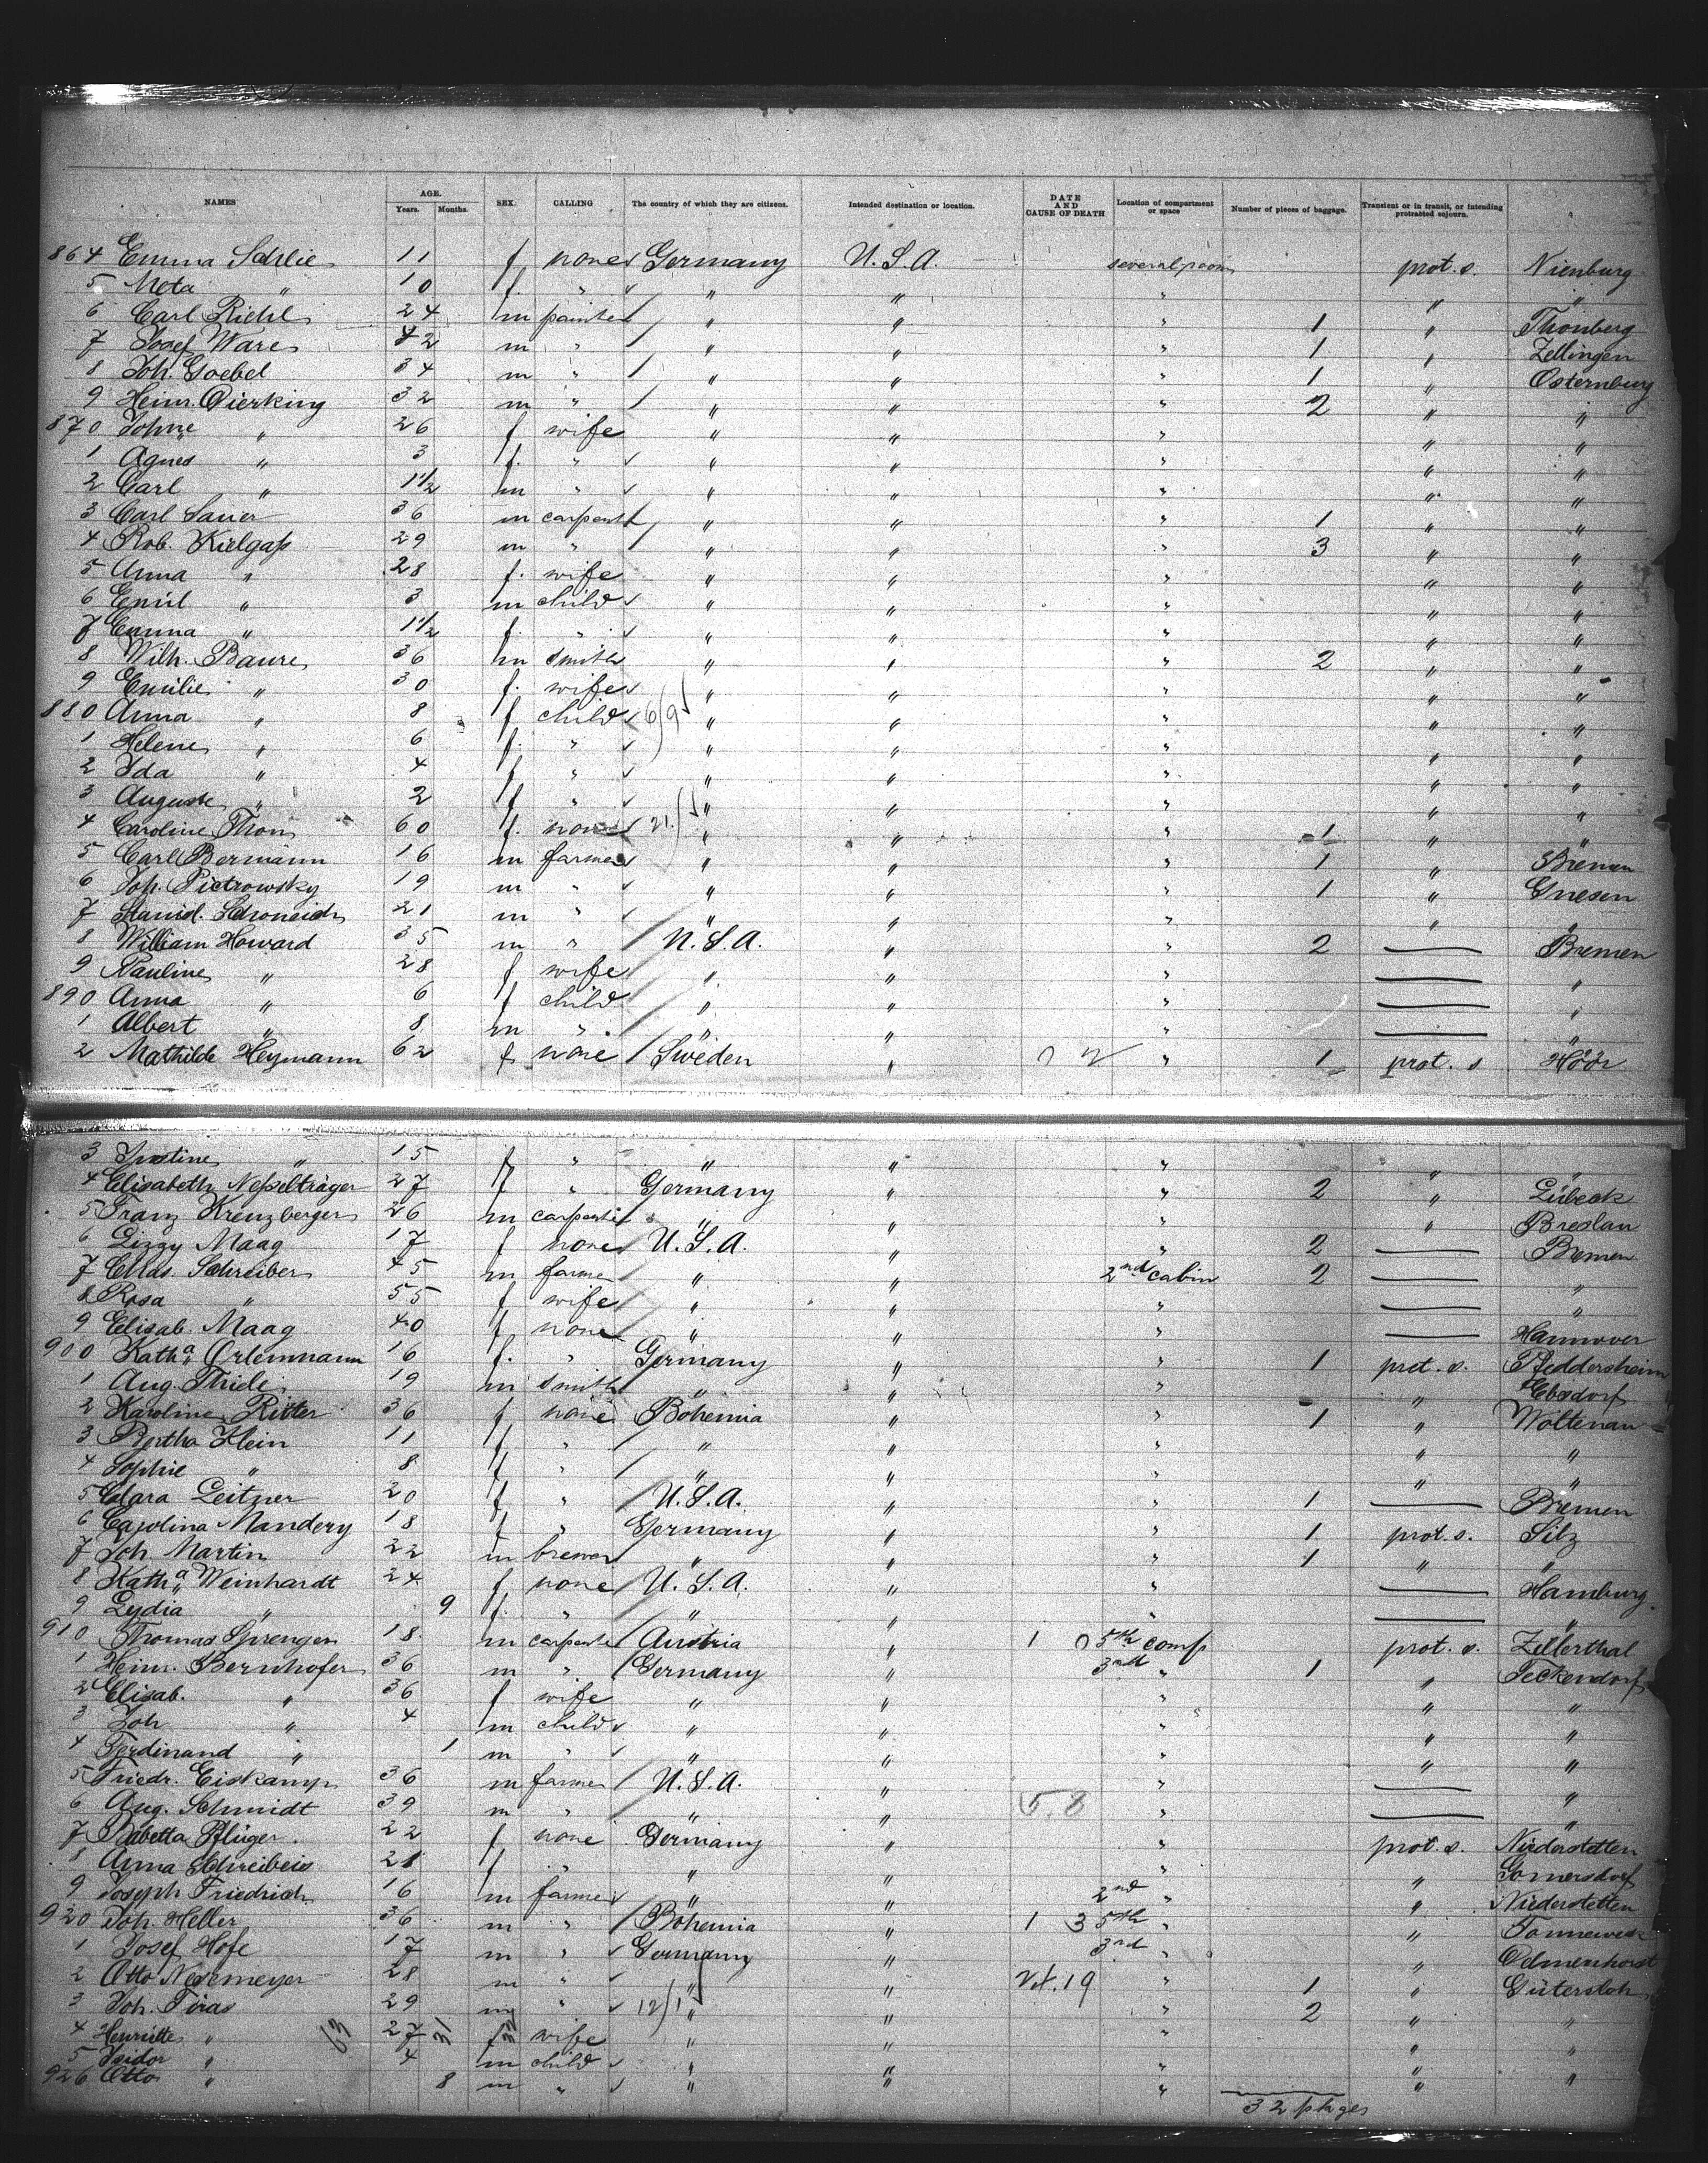 NAMES AGE. Years. Months. SEX. CALLING The country of which they are citizens. Intended destination or location. DATE AND CAUSE OF DEATH Location of compartment or space Number of pieces of baggage. Transient or in transit, or intending protracted sojourn.
864 Emma Schlie 11 f none Germany U.S.A. several rooms prot. s. Nienburg
5 Meta " 10 f. " " " " " "
6 Carl Riehl 24 m painter " " " 1 " Thonberg
7 Josef Ware 42 m " " " " 1 " Zellingen
8 Joh. Goebel 34 m " " " " 1 " Osternburg
9 Heinr. Dierking 32 m " " " " 2 " "
870 Johne " 26 f wife " " " " "
1 Agnes " 3 f. " " " " " "
2 Carl " 1 1/2 m " " " " " "
3 Carl Sauer 36 m carpent " " " 1 " "
4 Rob. Kielgaß 29 m " " " " 3 " "
5 Anna " 28 f. wife " " " " "
6 Emil " 3 m child " " " " "
7 Emma " 1 1/2 f. " " " " " "
8 Wilh. Baure 36 m smith " " " 2 " "
9 Emilie " 30 f. wife " " " " "
880 Anna " 8 f child 6/9 " " " " "
1 Helene " 6 f. " " " " " "
2 Ida " 4 f " " " " " "
3 Auguste " 2 f " " " " " "
4 Caroline Thon 60 f. none 21. " " " 1 " "
5 Carl Bermann 16 m farmer " " " 1 " Bremen
6 Joh. Pietrowsky 19 m " " " " 1 " Gnesen
7 21 m " " " " " "
8 William Howard 35 m " U.S.A. " " 2 — Bremen
9 Pauline " 28 f wife " " " — "
890 Anna " 6 f child " " " — "
1 Albert " 8 m " " " " — "
2 Mathilde Heymann 62 f none Sweden " " 1 prot. s Höör
3 Justine " 15 f " " " " " "
4 Elisabeth Neßelträger 27 f " Germany " " 2 " Lübeck
5 Franz Kreuzberger 26 m carpente " " " " Breslau
6 Lizzy Maag 17 f none U.S.A. " " 2 — Bremen
7 Chas. Schreiber 45 m farmer " " 2nd cabin 2 — "
8 Rosa " 55 f wife " " " — "
9 Elisab. Maag 40 f none " " " — Hannover
900 Katha Orlemnann 16 f. " Germany " " 1 prot. s. Pfeddersheim
1 Aug. Thiele 19 m smith " " " " Ebsdorf
2 Karoline Ritter 36 f none Bohemia " " 1 " Woltenau
3 Bertha Klein 11 f " " " " " "
4 Sophie " 8 f " " " " " "
5 Clara Leitner 20 f " U.S.A. " " 1 — Bremen
6 Carolina Mandery 18 f " Germany " " 1 prot. s. Silz
7 Joh. Martin 22 m brewer " " " 1 " "
8 Katha Weinhardt 24 f none U.S.A. " " — Hamburg.
9 Lydia " 9 f. " " " " — "
910 Thomas Sprenger 18 m carpente Austria " 5th comp prot. s. Zillerthal
1 Heinr. Bernhofer 36 m " Germany " 3rd " 1 " Teckendorf
2 Elisab. " 36 f wife " " " " "
3 Joh " 4 m child " " " " "
4 Ferdinand " 1 m " " " " " "
5 Friedr. Eiskamp 36 m farmer U.S.A. " " — "
6 Aug. Schmidt 39 m " " " 5.8 " — "
7 Babetta Pflüger. 22 f none Germany " " prot. s. Niederstetten
8 Anna 21 f " " " " " Gomersdorf
9 Joseph Friedrich 16 m farmer " " 2nd " " Niederstetten
920 Joh. Heller 36 m " Bohemia " 1 3 5th " "
1 Josef Hofe 17 m " Germany " 3rd " " Delmenhorst
2 Otto Nesemeyer 28 m " " " 19 " 1 " Gütersloh
3 Joh. Firas 29 m " 12/1 " " " 2 " "
4 Henriette " 63 27 31 f 32 wife " " " " "
5 Isidor " 4 m child " " " " "
926 Otto " 8 m " " " " " "
32 pkges